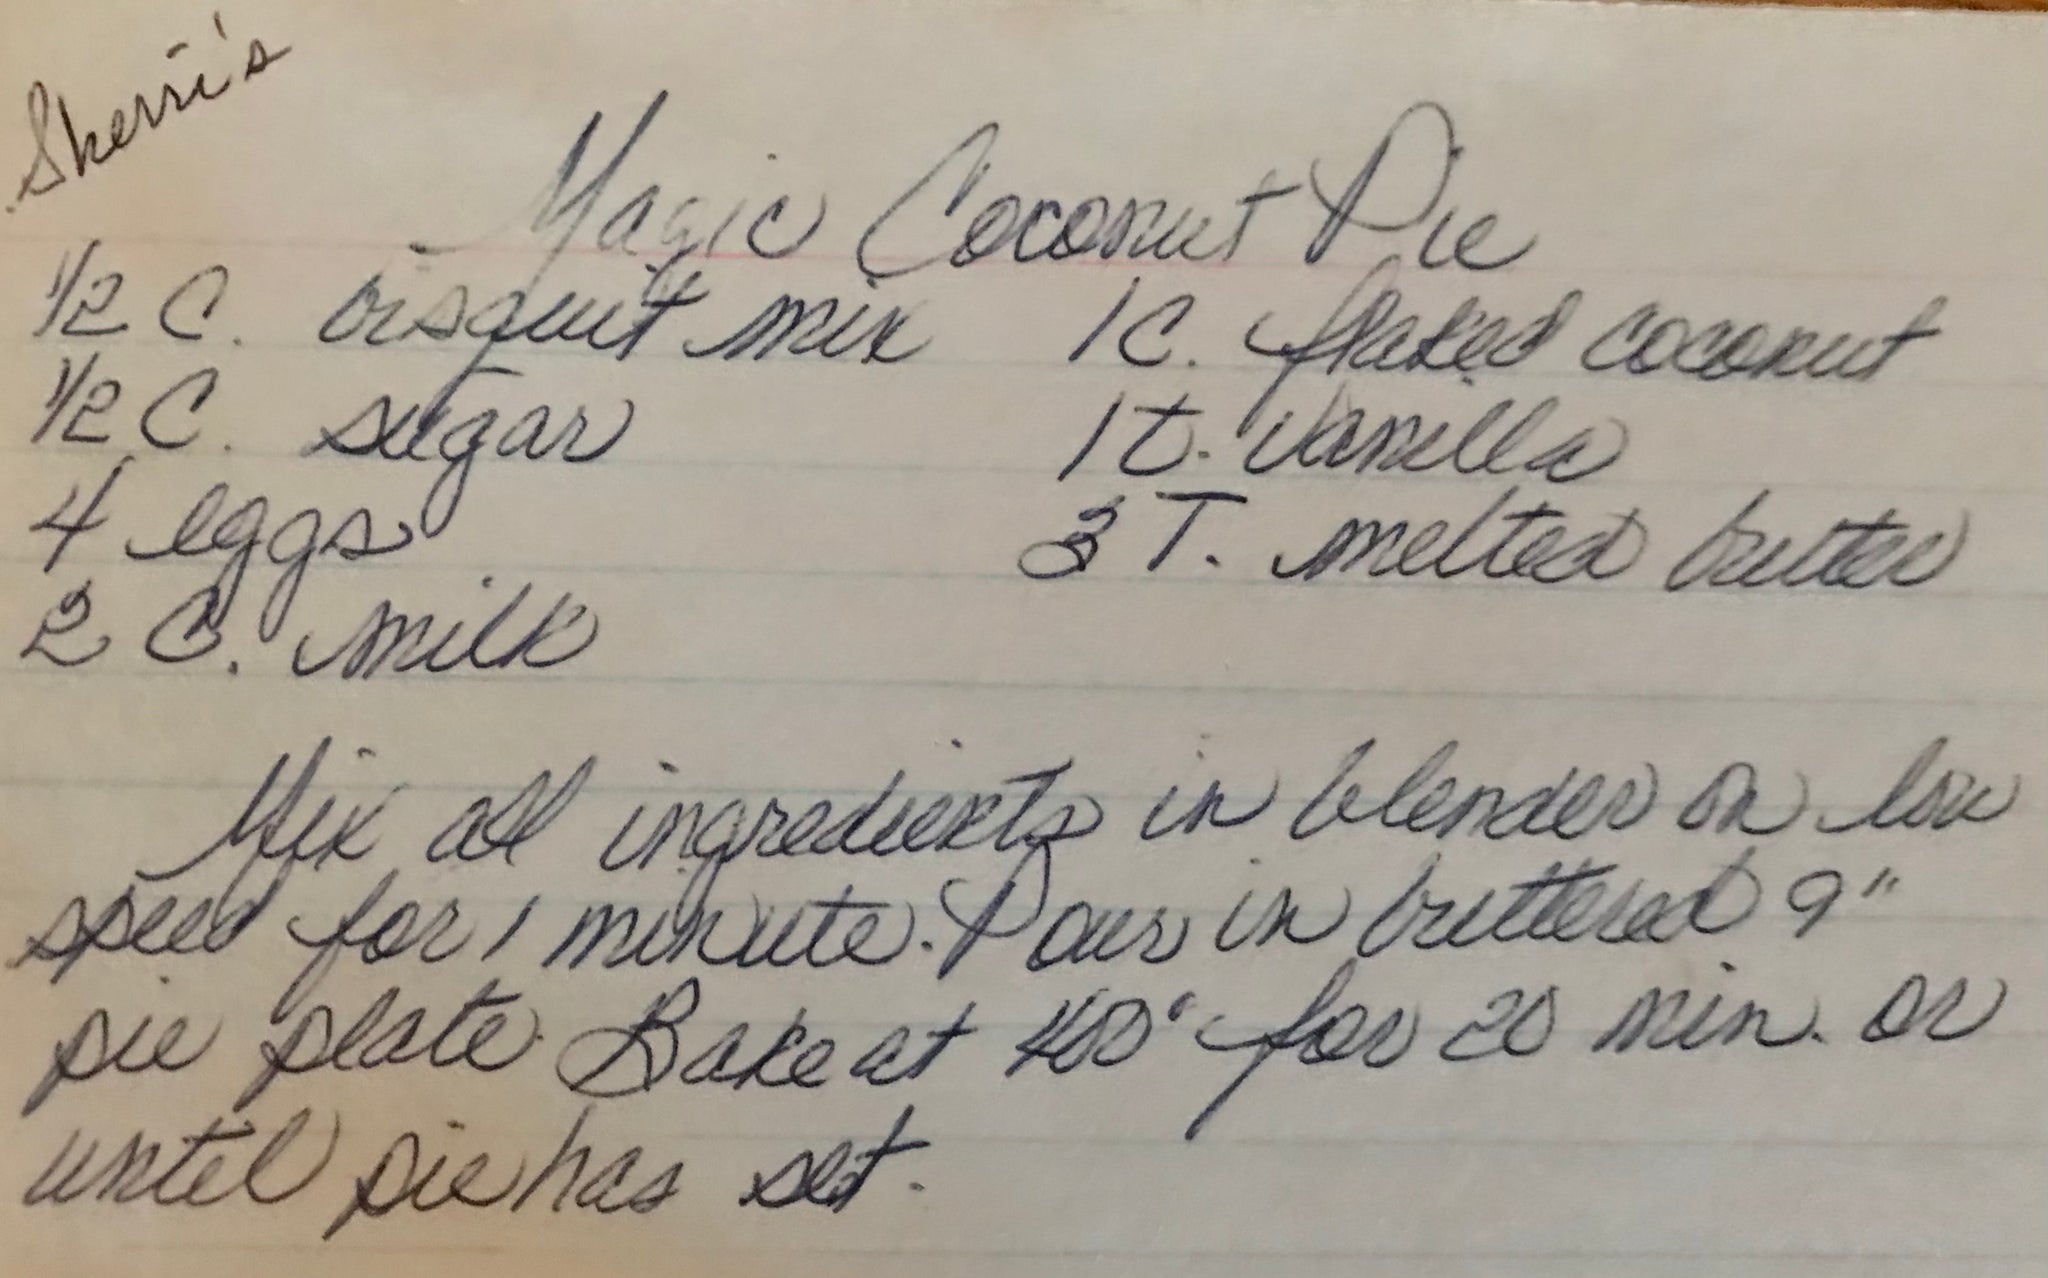 Sherri's
Magic Coconut Pie
1/2 C. bisquit mix 1 C. flaked coconut
1/2 C. sugar 1 t. vanilla
4 eggs 3 T. melted butter
2 C. milk
Mix all ingredients in blender on low
speed for 1 minute. Pour in buttered 9"
pie plate. Bake at 400° for 20 min. or
until pie has set.